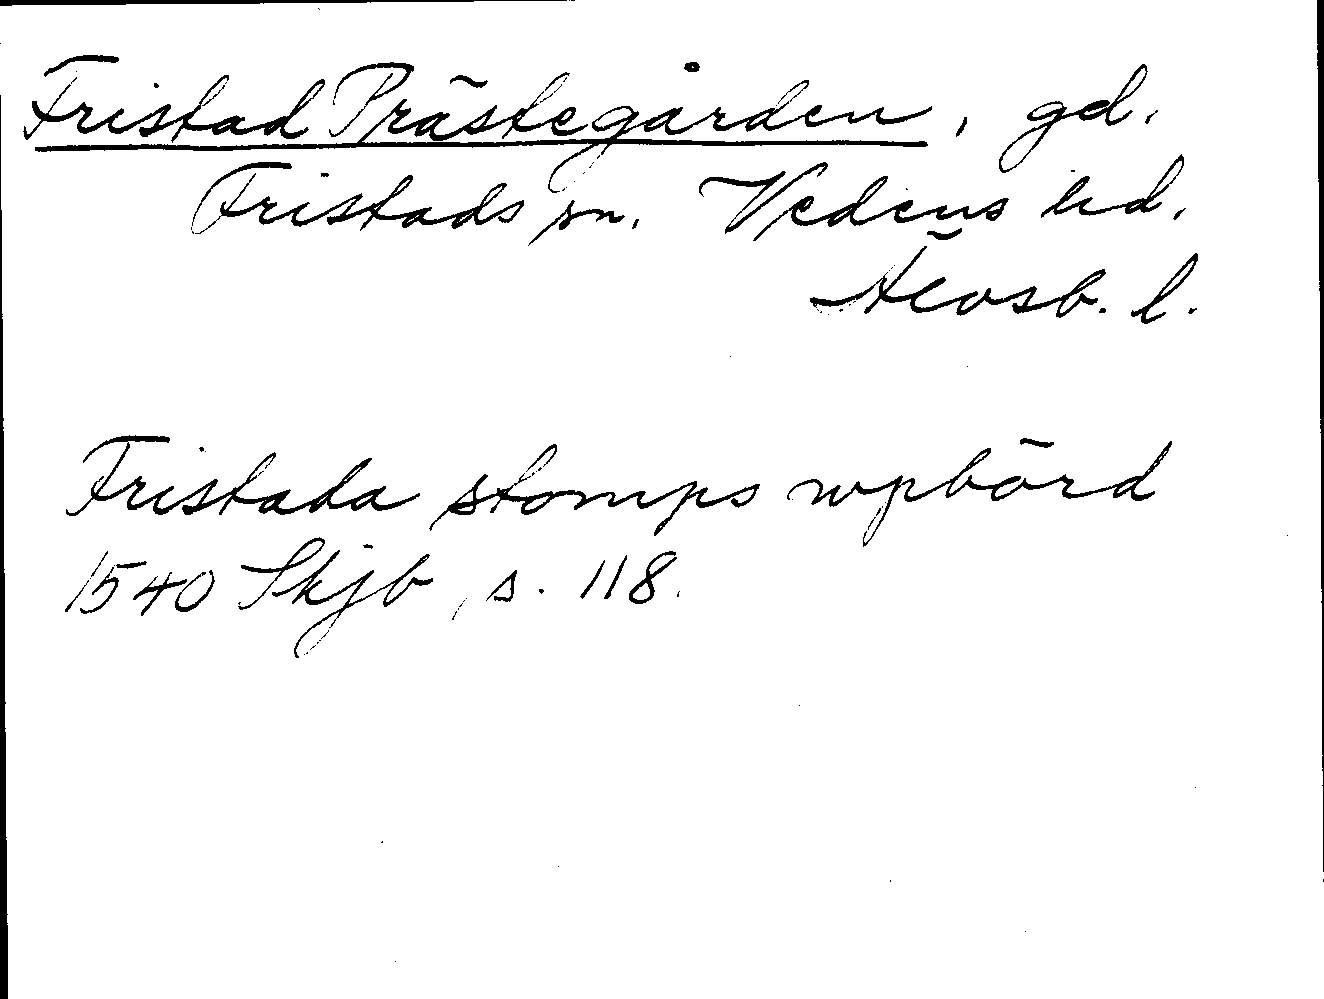 Fristad Prästegården, gd.
Fristads sn. Vedens hd.
Älvsb. l.
Fristada stomps wpbörd
1540 Skjb, s. 118.